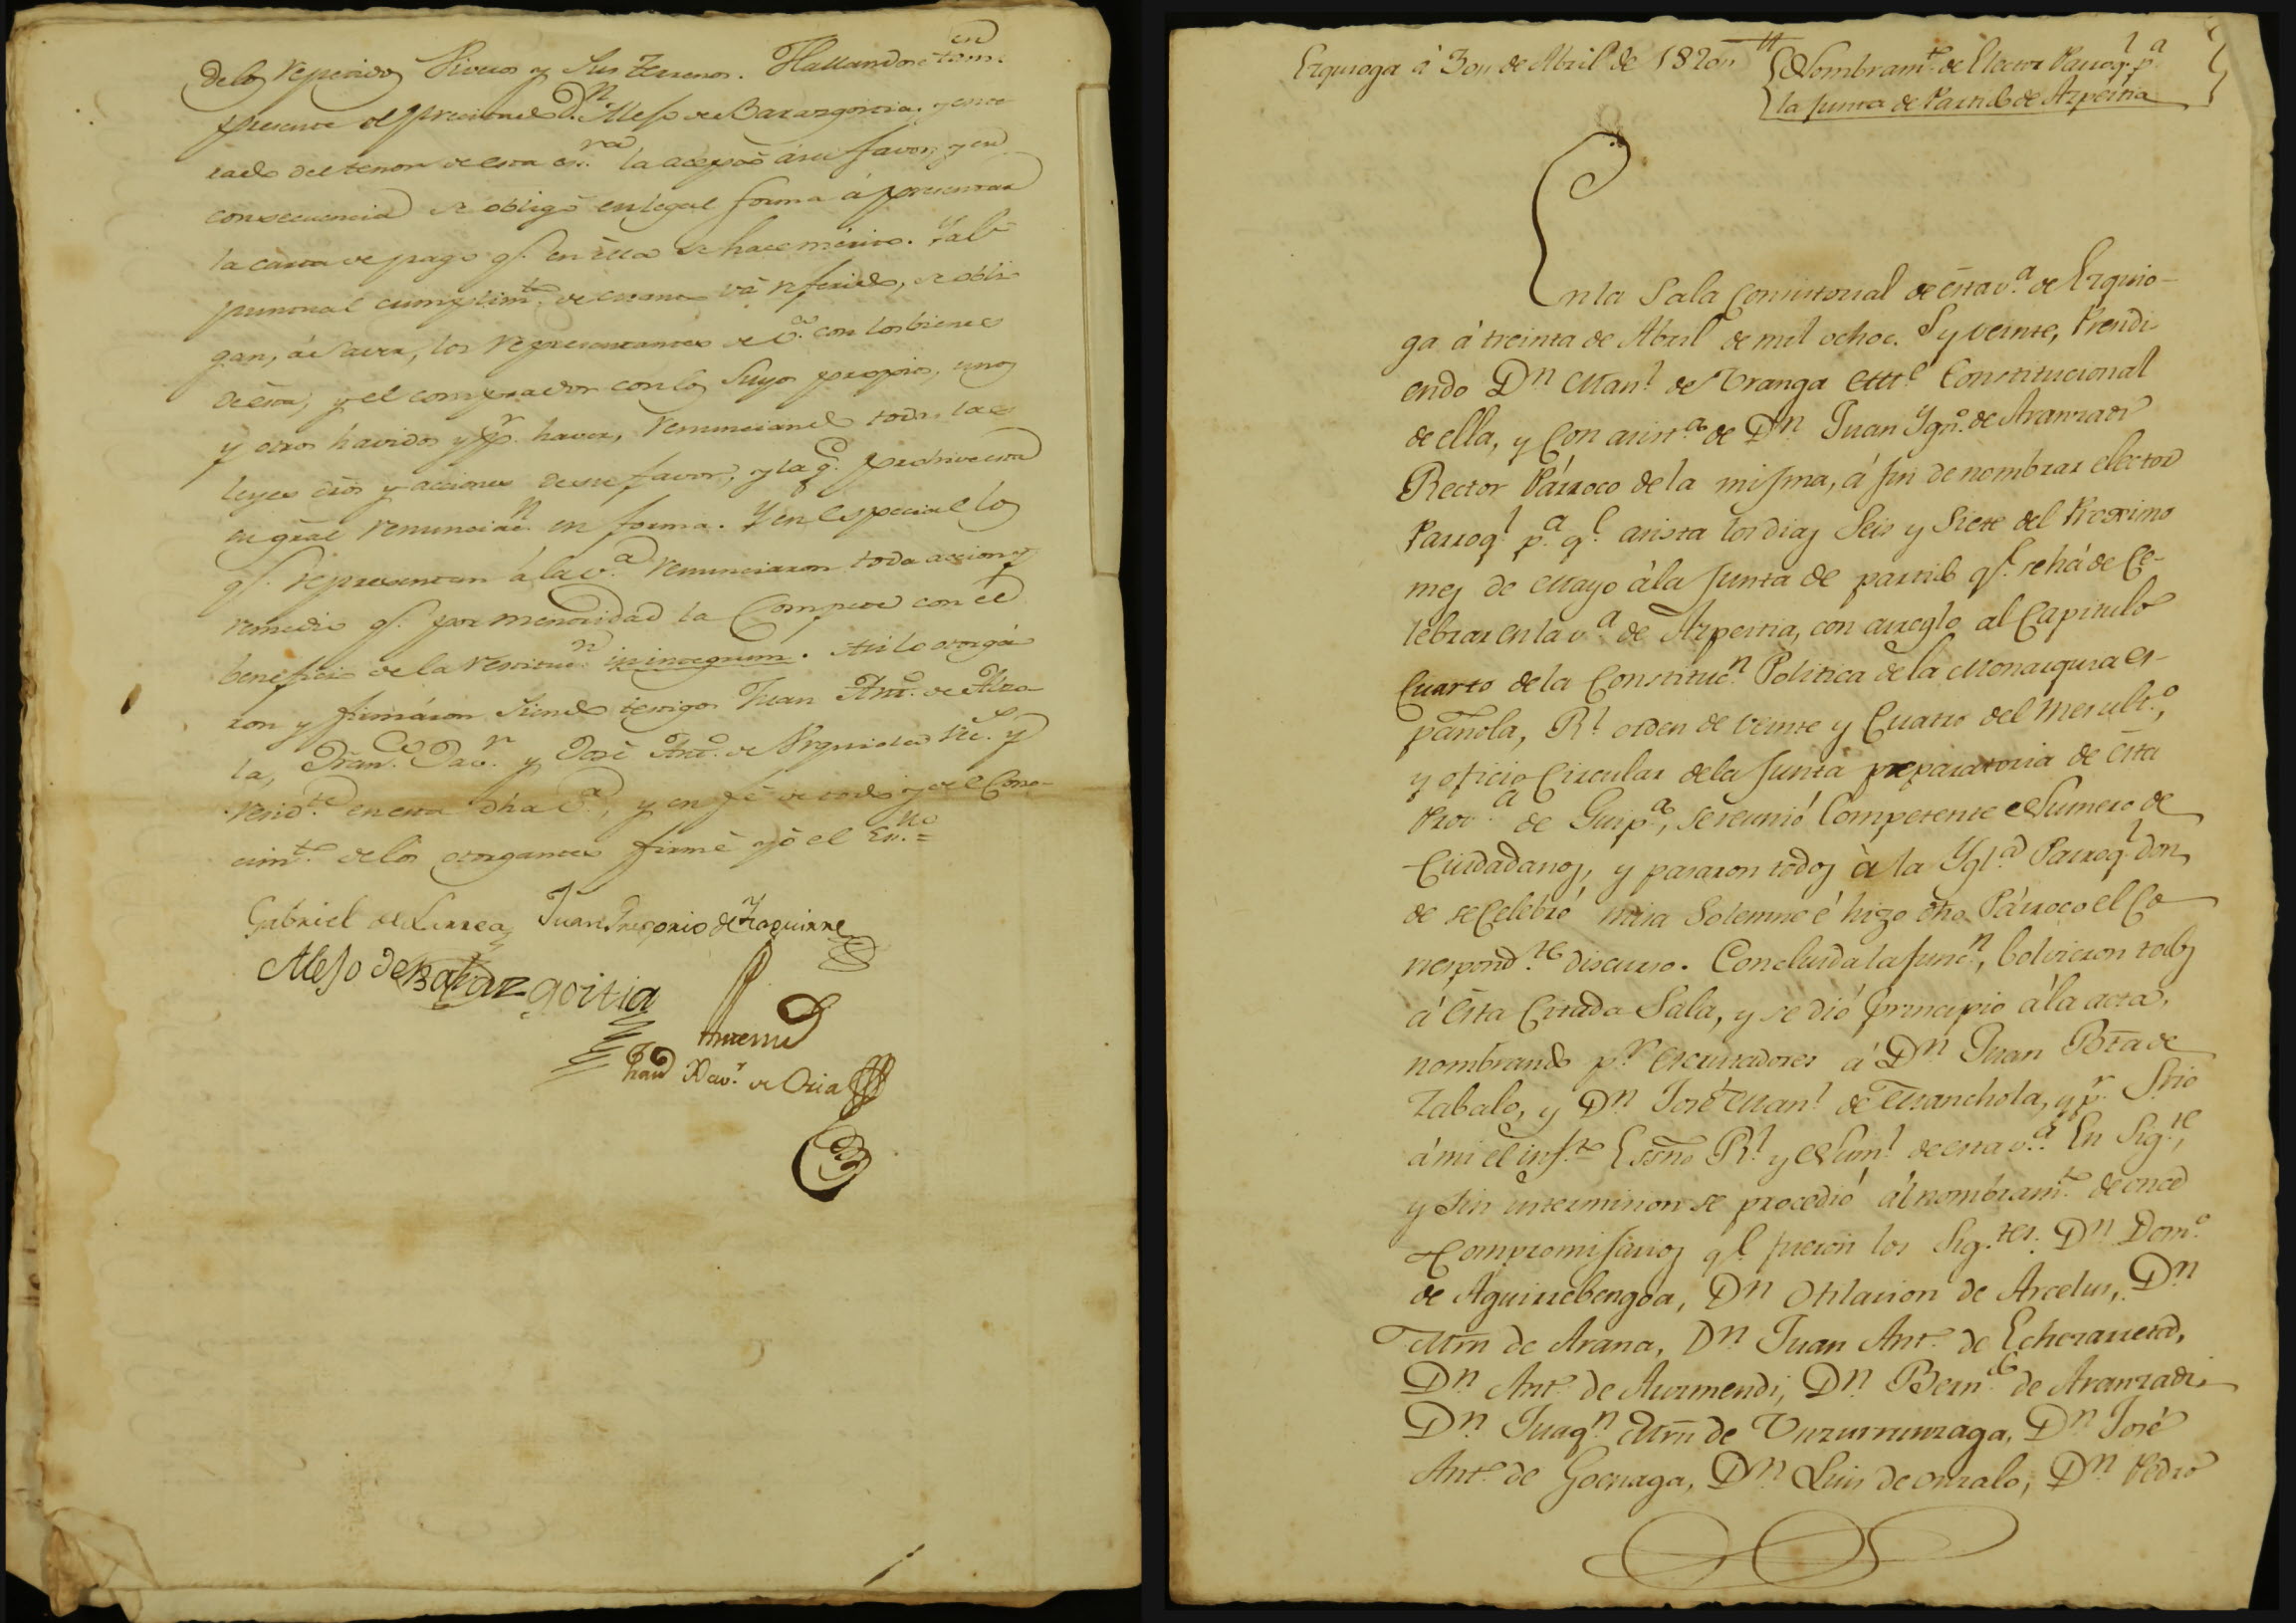 de los repetidos Viveros y sus terrenos. Hallandose tam.
en
presente el precitado Dn. Alejo de Barazgoitia, y ente
rado del tenor de esta esra. la aceptó á su favor, y en
consecuencia se obligó en legal forma á presentar
la carta de pago q.e en ella se hace mérito. Y al
puntual cumplim.to de cuanto vá referido, se obli
gan, á saver, los representantes de v.a con los bienes
de esta, y el comprador con los suyos propios, unos
y otros havidos y p.r haver, renunciando todas las
leyes dros y acciones de su favor, y la q.e prohive esta
en gral renunciac.n en forma. Y en especial los
q.e representan á la v.a renunciaron toda accion y
remedio q.e por menoridad la compete con el
beneficio de la restituc.n in integrum. Asi lo otorgá
ron y firmáron siendo testigos Juan Ant.o de Alza
la, Fran.co Xav.r y José Ant.o de Urquiola vec.s y
resid.tes en esta dha v.a, y en fé de todo y de el cono-
cim.to de los otorgantes firmé yó el Esn.o =
Gabriel de Larrea Juan Gregorio de Yzaguirre
Alejo de Barazgoitia
Ante mi
Fran.co Xav.r de Oria
Ezquioga á 30,, de Abril de 1820,, Nombram.to de Elector Parroq.l p.a
la Junta de Partido de Azpeitia
En la Sala Consistorial de esta v.a de Ezquio-
ga á treinta de Abril de mil ochoc.s y veinte, Presidi
endo Dn Man.l de Uranga Alc.e Constitucional
de ella, y con asist.a de Dn Juan Ygn.o de Aranzadi
Rector Párroco de la misma, á fin de nombrar elector
Parroq.l p.a q.e asista los dias seis y siete del Proximo
mes de Mayo á la Junta de partido q.e se há de Ce-
lebrar en la v.a de Azpeitia, con arreglo al Capitulo
Cuarto de la Constituc.n Politica de la Monarquia es-
pañola, R.l orden de veinte y Cuatro del mes ult.o,
y oficio Circular de la Junta preparatoria de ésta
Prov.a de Guip.a, se reunió Competente Numero de
Ciudadanos, y pasaron todos à la Ygl.a Parroq.l don
de se Celebró misa Solemne é hizo dho Párroco el Co
rrespond.te discurso. Concluida la func.n, bolvieron todos
á ésta Citada Sala, y se dió principio á la acta,
nombrando p.r escrutadores á Dn Juan Bta de
Zabalo, y Dn José Man.l de Manchola, y p.r Srio
á mi el infr.to Essno R.l y Num.l de esta v.a En Sig.te,
y sin intermision se procedió ál nombram.to de once
Compromisarios q.e fueron los Sig.tes Dn Dom.o
de Aguirrebengoa, Dn Hilarion de Arcelus, Dn
Mrn de Arana, Dn Juan Ant.o de Echezarreta,
Dn Ant.o de Aurmendi, Dn Bern.do de Aranzadi,
Dn Juaq.n Mrn de Vuzurrunzaga, Dn José
Ant.o de Goenaga, Dn Luis de Onzalo, Dn Pedro